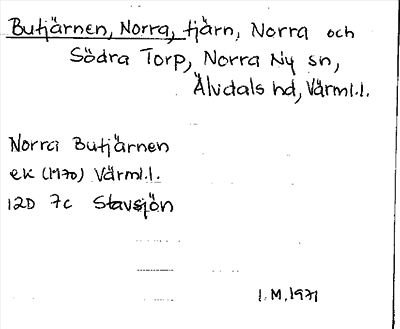 Butjärnen, Norra, tjärn, Norra och
Södra Torp, Norra Ny sn,
Älvdals hd, Värml.l.
Norra Butjärnen
ek (M70) Värml.l.
12D 7c Stavsjön
I.M.1971